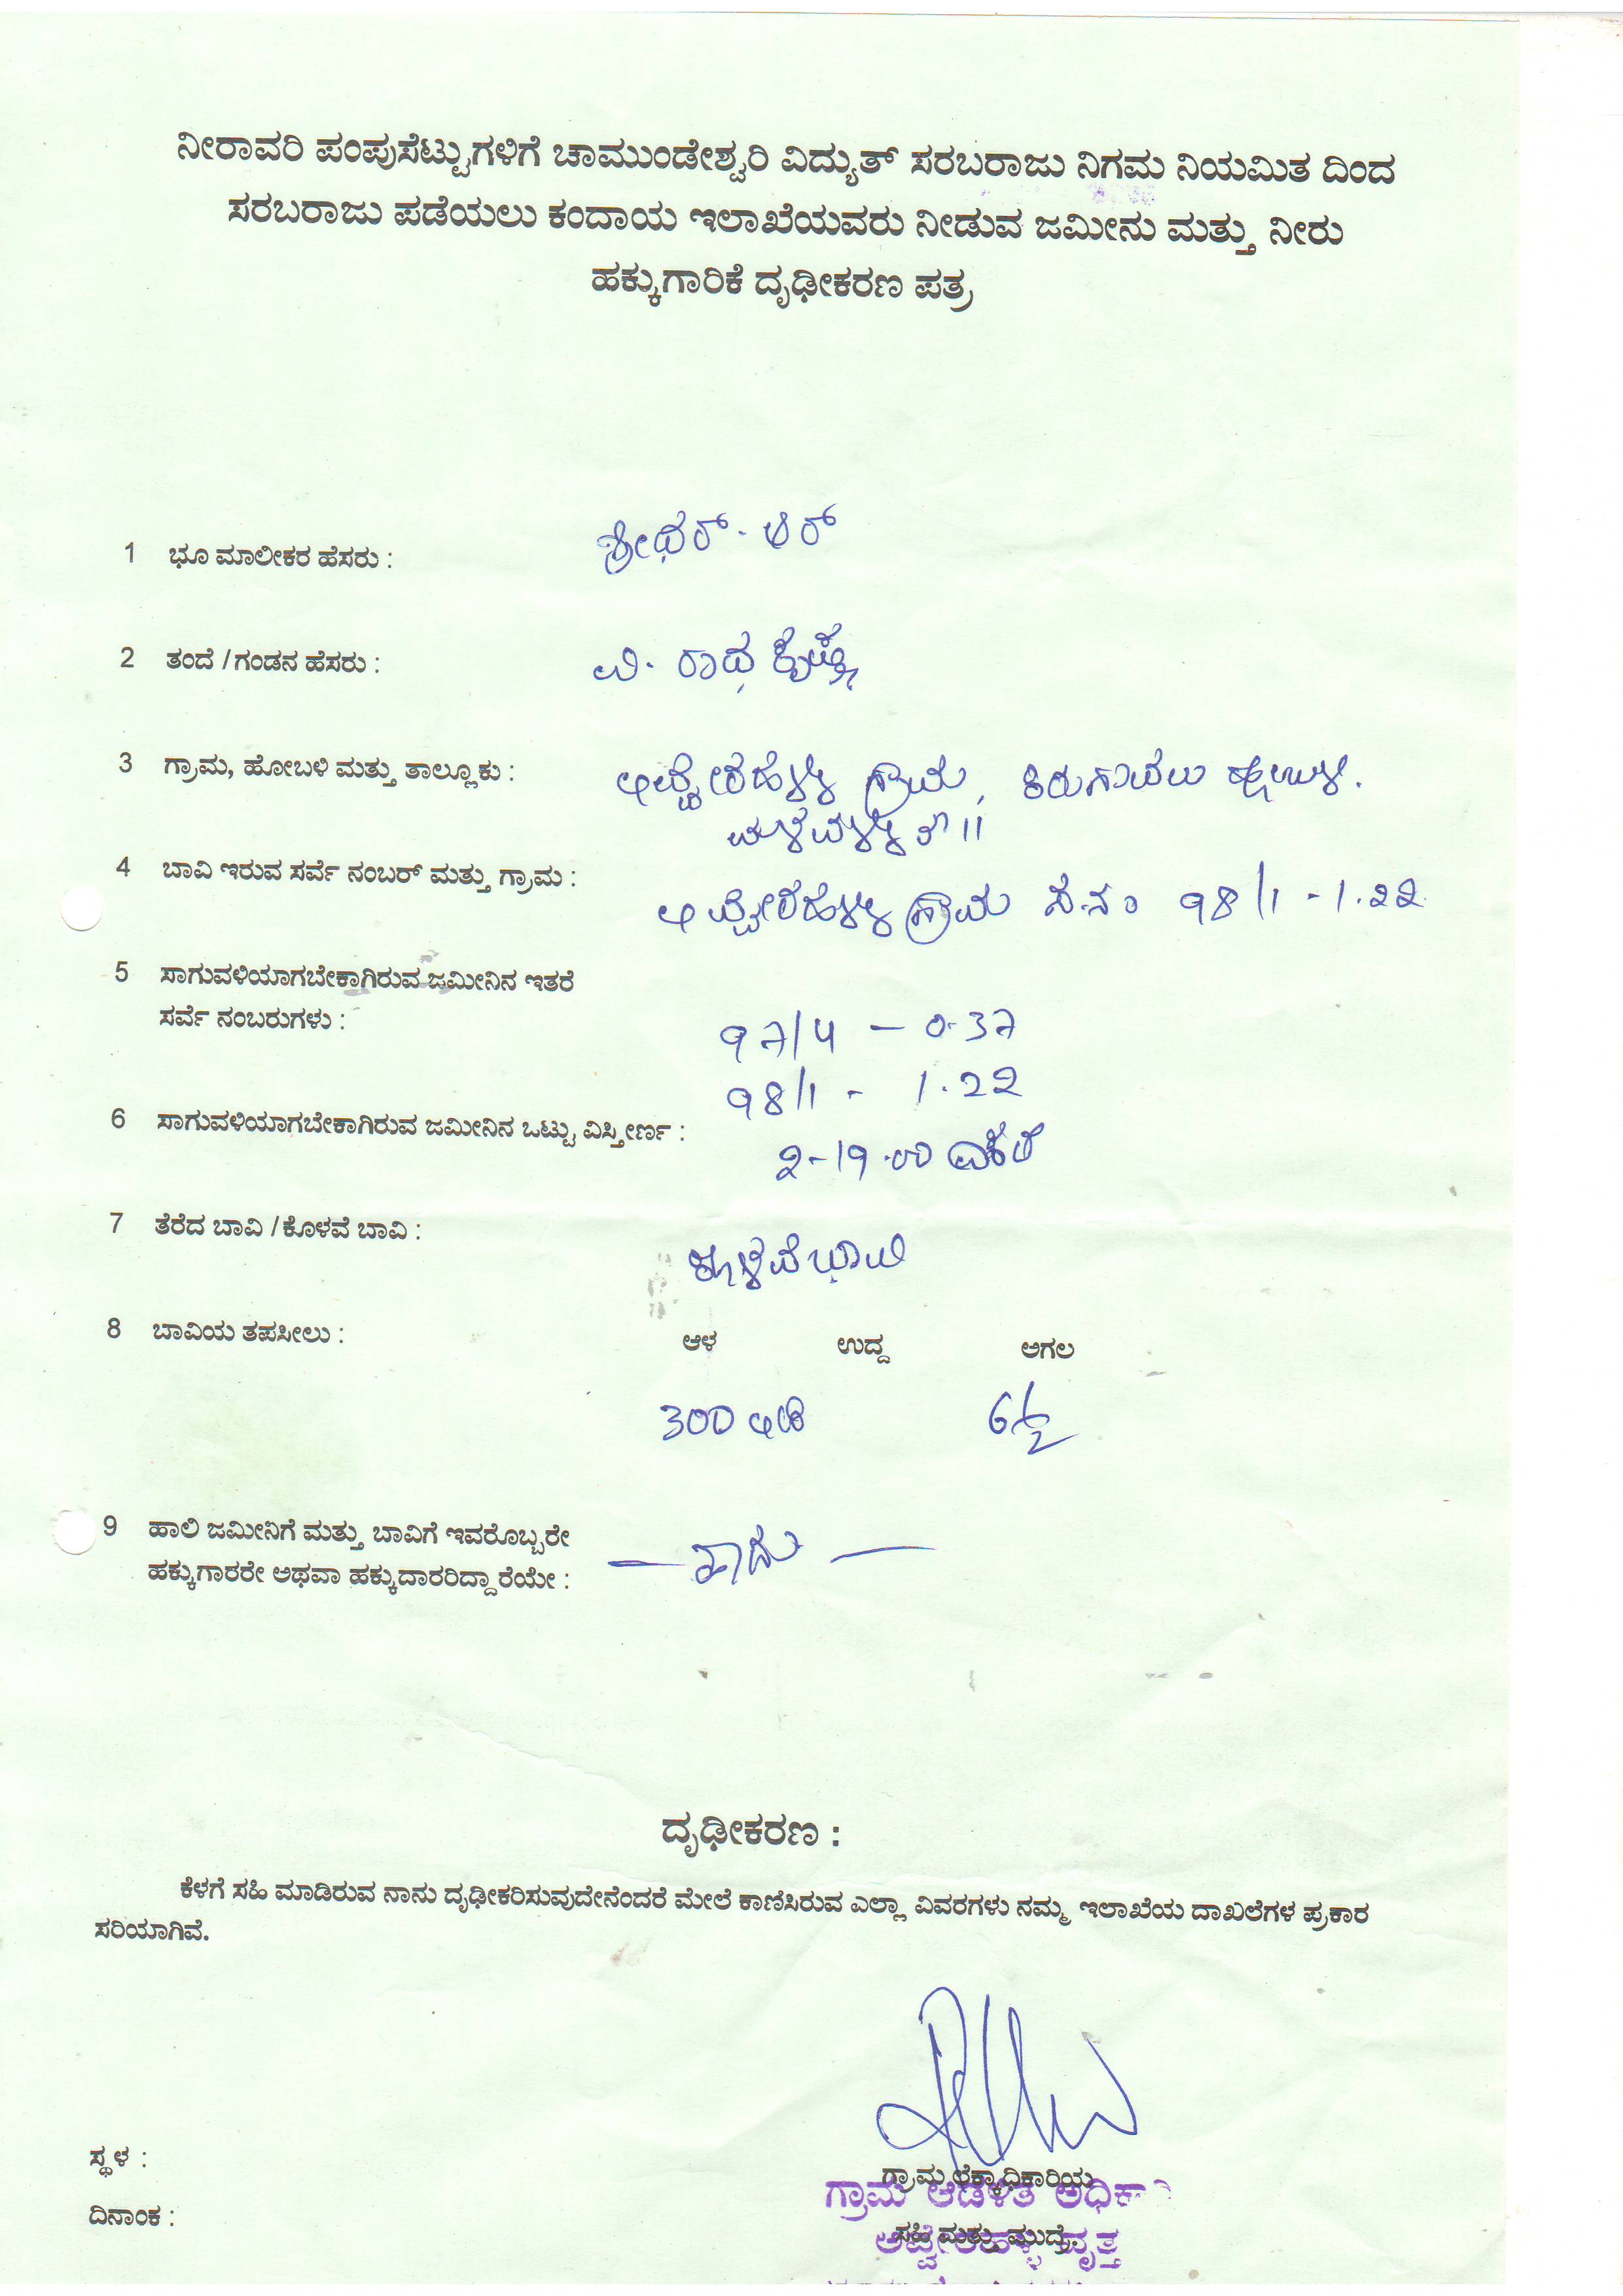 ನೀರಾವರಿ ಪಂಪುಸೆಟ್ಟುಗಳಿಗೆ ಚಾಮುಂಡೇಶ್ವರಿ ವಿದ್ಯುತ್ ಸರಬರಾಜು ನಿಗಮ ನಿಯಮಿತ ದಿಂದ
ಸರಬರಾಜು ಪಡೆಯಲು ಕಂದಾಯ ಇಲಾಖೆಯವರು ನೀಡುವ ಜಮೀನು ಮತ್ತು ನೀರು
ಹಕ್ಕುಗಾರಿಕೆ ದೃಢೀಕರಣ ಪತ್ರ
1 ಭೂ ಮಾಲೀಕರ ಹೆಸರು : ಶ್ರೀಧರ್. ಆರ್
2 ತಂದೆ / ಗಂಡನ ಹೆಸರು : ವಿ. ರಾಧ ಕೃಷ್ಣ
3 ಗ್ರಾಮ, ಹೋಬಳಿ ಮತ್ತು ತಾಲ್ಲೂಕು : ಗ್ರಾಮ, ಕಿರುಗಾವಲು ಹೋಬಳಿ.
ಮಳವಳ್ಳಿ ತಾ||
4 ಬಾವಿ ಇರುವ ಸರ್ವೆ ನಂಬರ್ ಮತ್ತು ಗ್ರಾಮ : ಗ್ರಾಮ ಸ.ನಂ 98/1 - 1.22
5 ಸಾಗುವಳಿಯಾಗಬೇಕಾಗಿರುವ ಜಮೀನಿನ ಇತರೆ
ಸರ್ವೆ ನಂಬರುಗಳು : 97/4 - 0.37
98/1 - 1.22
6 ಸಾಗುವಳಿಯಾಗಬೇಕಾಗಿರುವ ಜಮೀನಿನ ಒಟ್ಟು ವಿಸ್ತೀರ್ಣ : 2-19.00 ಎಕರೆ
7 ತೆರೆದ ಬಾವಿ / ಕೊಳವೆ ಬಾವಿ : ಕೊಳವೆ ಬಾವಿ
8 ಬಾವಿಯ ತಪಸೀಲು : ಆಳ ಉದ್ದ ಅಗಲ
300 ಅಡಿ 6 1/2
9 ಹಾಲಿ ಜಮೀನಿಗೆ ಮತ್ತು ಬಾವಿಗೆ ಇವರೊಬ್ಬರೇ
ಹಕ್ಕುಗಾರರೇ ಅಥವಾ ಹಕ್ಕುದಾರರಿದ್ದಾರೆಯೇ : — ಹೌದು —
ದೃಢೀಕರಣ :
ಕೆಳಗೆ ಸಹಿ ಮಾಡಿರುವ ನಾನು ದೃಢೀಕರಿಸುವುದೇನೆಂದರೆ ಮೇಲೆ ಕಾಣಿಸಿರುವ ಎಲ್ಲಾ ವಿವರಗಳು ನಮ್ಮ ಇಲಾಖೆಯ ದಾಖಲೆಗಳ ಪ್ರಕಾರ
ಸರಿಯಾಗಿವೆ.
ಸ್ಥಳ :
ಗ್ರಾಮ ಲೆಕ್ಕಾಧಿಕಾರಿಯ
ಗ್ರಾಮ ಆಡಳಿತ ಅಧಿಕಾರಿ
ದಿನಾಂಕ :
ಸಹಿ ಮತ್ತು ಮುದ್ರೆ
ವೃತ್ತ